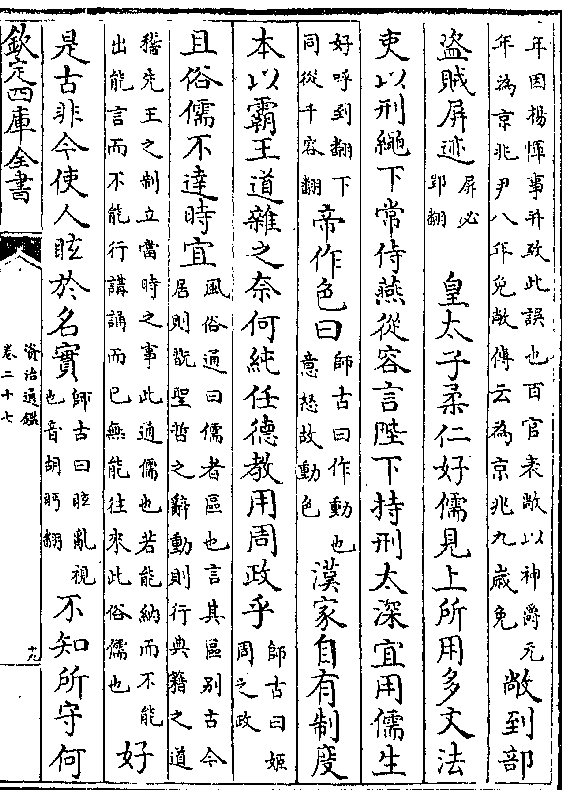 年因楊惲事并致此誤也百官表敞以神爵元
年為京兆尹八年免敞傳云為京兆九歲免
敞到部
盜賊屏迹
屏必
郢翻
皇太子柔仁好儒見上所用多文法
吏以刑繩下常侍燕從容言陛下持刑太深宜用儒生
好呼到翻下
同從千容翻
帝作色曰
師古曰作動也
意怒故動色
漢家自有制度
本以霸王道雜之奈何純任德教用周政乎
師古曰姬
周之政
且俗儒不達時宜
風俗通曰儒者區也言其區别古今
居則翫聖哲之辭動則行典籍之道
稽先王之制立當時之事此通儒也若能納而不能
出能言而不能行講誦而已無能往來此俗儒也
好
是古非今使人眩於名實
師古曰眩亂視
也音胡眄翻
不知所守何
欽定四庫全書
資治通鑑
卷二十七
十九